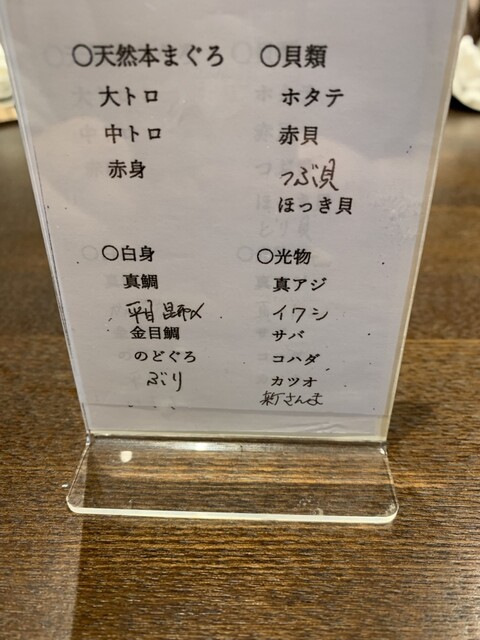 〇天然本まぐろ
大トロ
中トロ
赤身
〇貝類
ホタテ
赤貝
つぶ貝
ほっき貝
〇白身
真鯛
平目 昆布〆
金目鯛
のどぐろ
ぶり
〇光物
真アジ
イワシ
サバ
コハダ
カツオ
新さんま